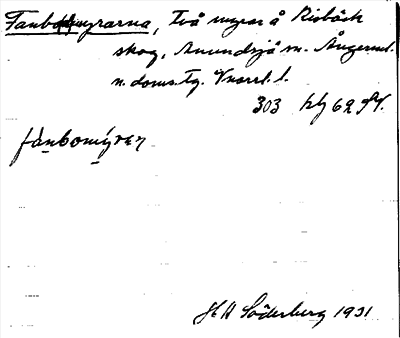 Tanbomyrarna, Två myrar å Risbäck
skog, Anundsjö sn. Ångerml.
n. doms. Tg. Vnorrl. l.
303 kbg 62 SV.
fànbomýrεn
H H Söderberg 1931